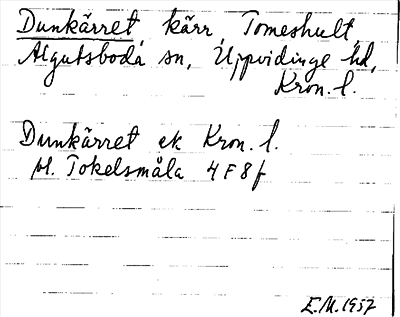 Dunkärret kärr, Tomeshult,
Algutsboda sn, Uppvidinge hd,
Kron. l.
Dunkärret ek Kron. l.
bl. Tokelsmåla 4 F 8 f
E.M. 1957